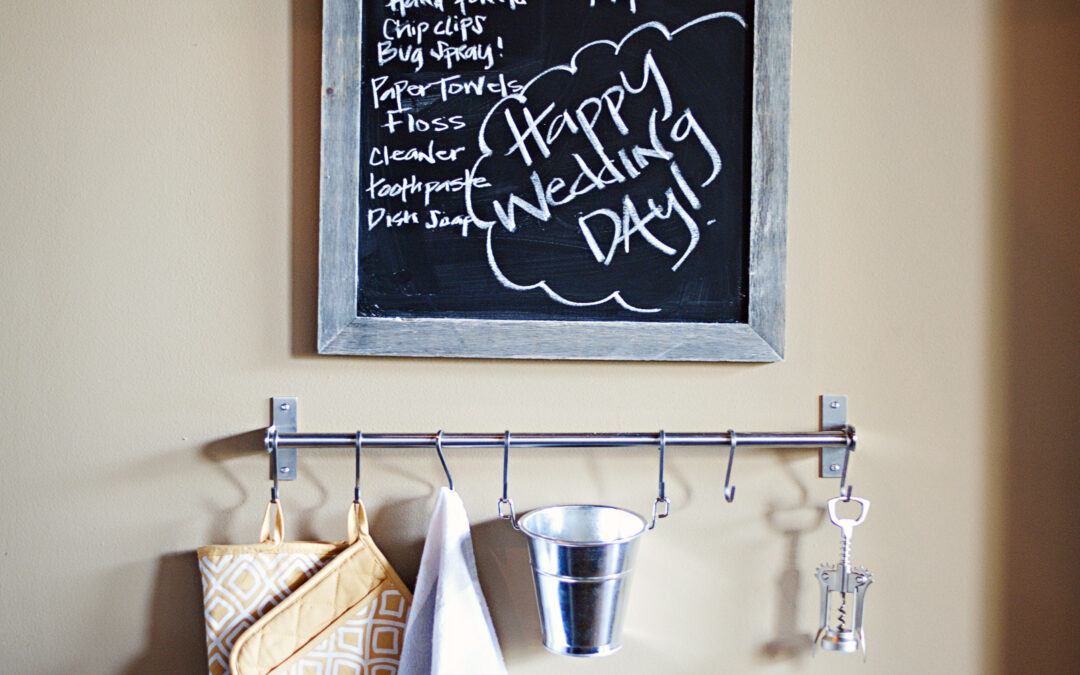 Chip clips
Bug Spray!
Paper Towels
Floss
cleaner
toothpaste
Dish Soap
Happy
Wedding
DAy!